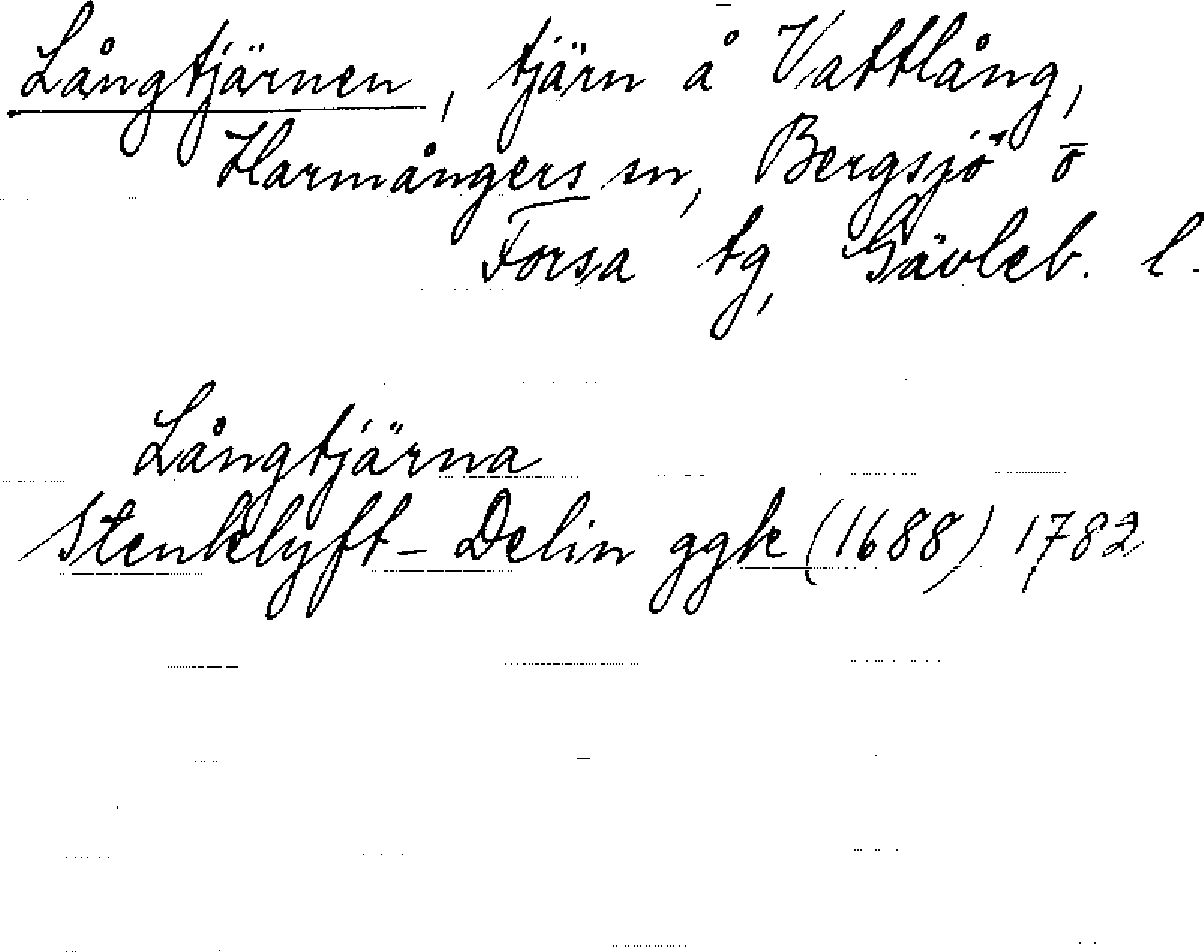 Långtjärnen, tjärn å Vattlång,
Harmångers sn, Bergsjö o
Forsa tg, Gävleb. l.
Långtjärna
Stenklyft-Delin ggk (1688) 1782